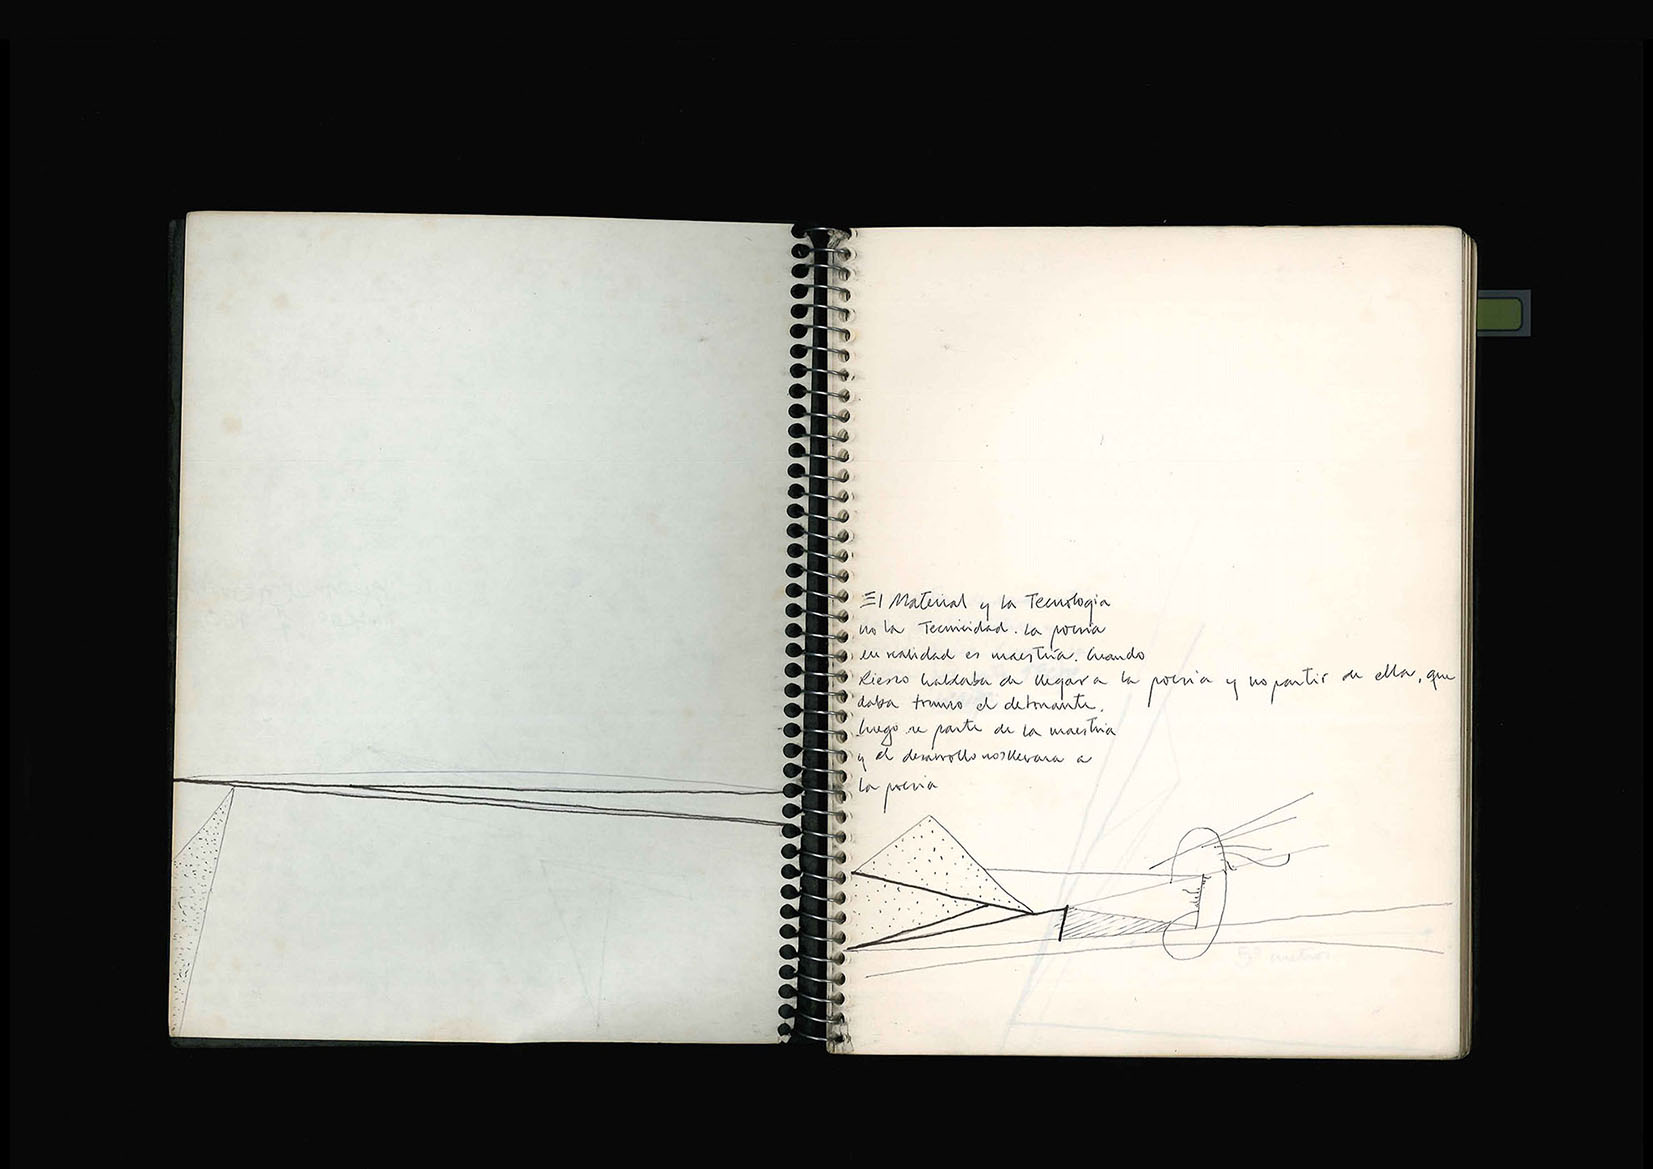 El Material y la Tecnología
no la Tecnicidad. La poesía
en realidad es maestría. Cuando
hablaba de llegar a la poesía y no partir de ella, que
daba trunco el detonante.
luego se parte de la maestría
y el desarrollo nos llevara a
la poesía
5º metros